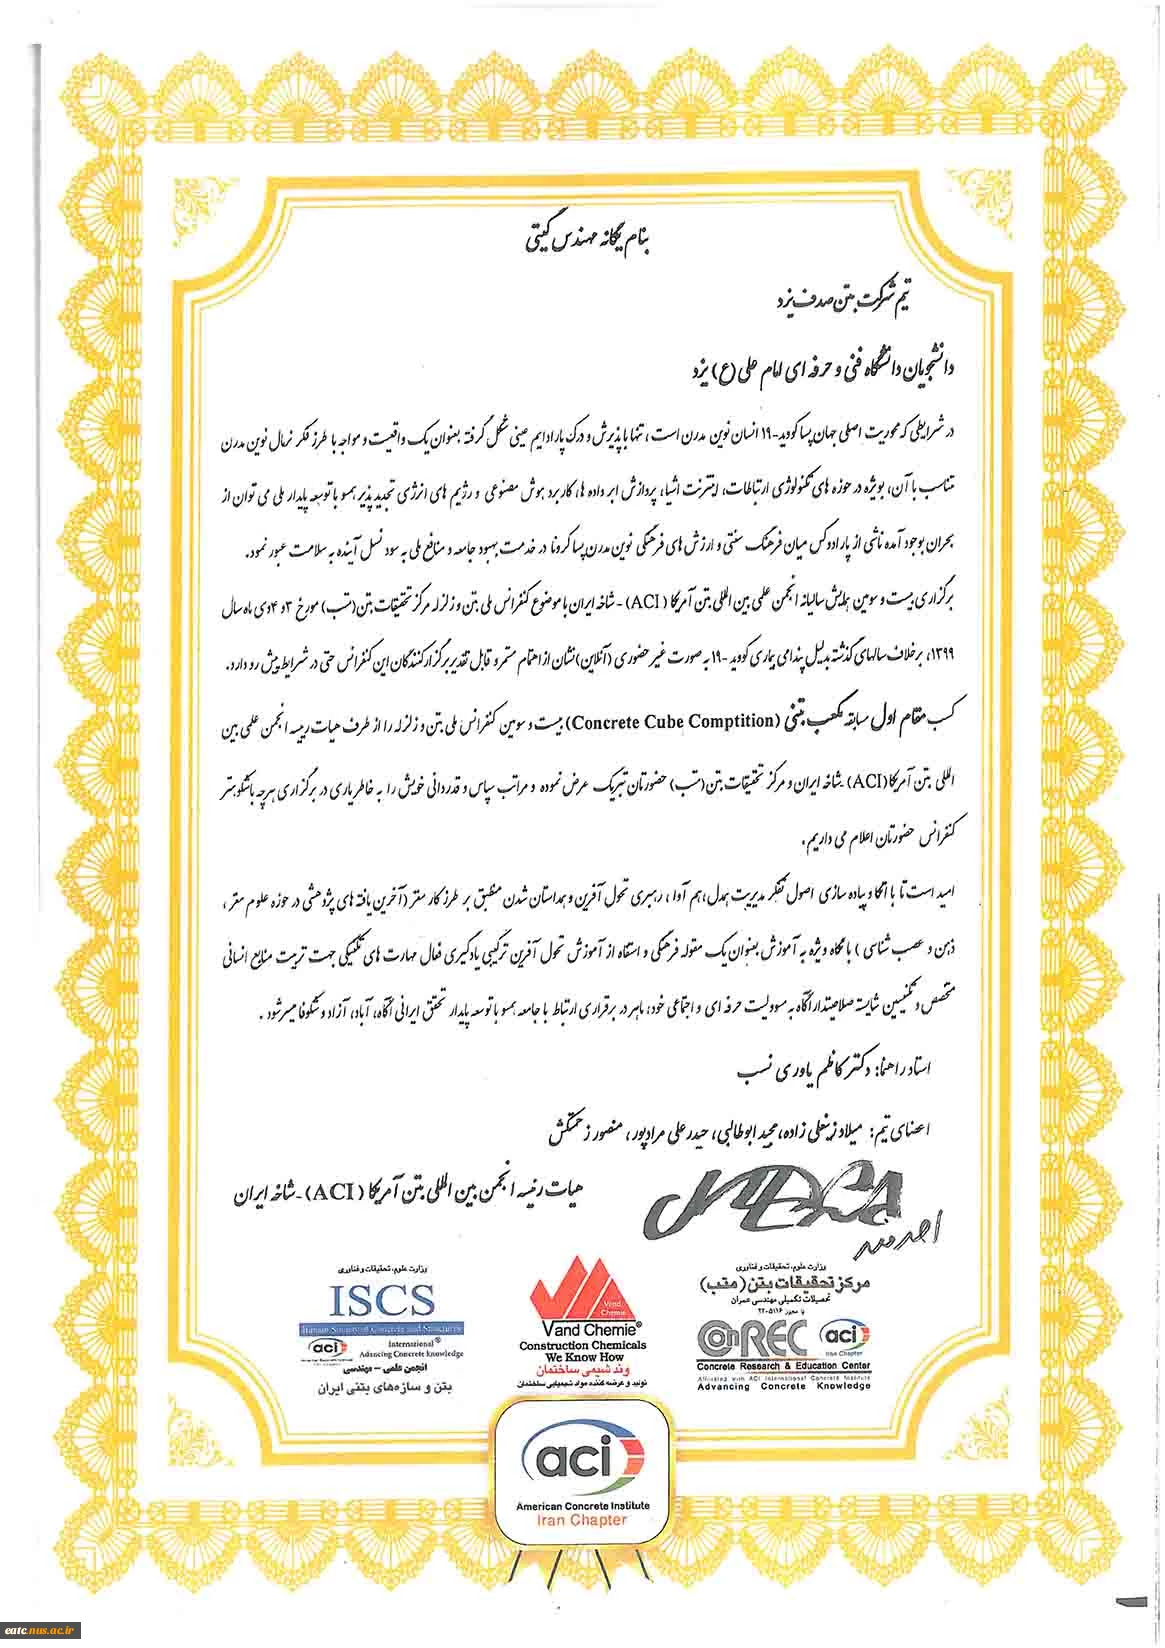 بنام یگانه مهندس گیتی
تیم شرکت بتن صدف یزد
دانشجویان دانشگاه فنی و حرفه ای امام علی (ع) یزد
در شرایطی که محوریت اصلی جهان پسا کووید-۱۹ انسان نوین مدرن است، تنها با پذیرش و درک پارادایم عینی شکل گرفته بعنوان یک واقعیت و مواجه با طرز فکر نرمال نوین مدرن
متناسب با آن، بویژه در حوزه های تکنولوژی ارتباطات، اینترنت اشیا، پردازش ابر داده ها، کاربرد هوش مصنوعی و رژیم های انرژی تجدید پذیر همسو با توسعه پایدار ملی می توان از
بحران بوجود آمده ناشی از پارادوکس میان فرهنگ سنتی و ارزش های فرهنگی نوین مدرن پسا کرونا در خدمت بهبود جامعه و منافع ملی به سود نسل آینده به سلامت عبور نمود.
برگزاری بیست و سومین همایش سالیانه انجمن علمی بین المللی بتن آمریکا (ACI) -شاخه ایران با موضوع کنفرانس ملی بتن و زلزله مرکز تحقیقات بتن(متب) مورخ ۳ و ۴ دی ماه سال
۱۳۹۹، برخلاف سالهای گذشته بدلیل پندامی بیماری کووید -۱۹ به صورت غیر حضوری (آنلاین) نشان از اهتمام مستمر و قابل تقدیر برگزار کنندگان این کنفرانس حتی در شرایط پیش رو دارد.
کسب مقام اول مسابقه مکعب بتنی (Concrete Cube Comptition) بیست و سومین کنفرانس ملی بتن و زلزله را از طرف هیات رییسه انجمن علمی بین
المللی بتن آمریکا(ACI) -شاخه ایران و مرکز تحقیقات بتن(متب) حضورتان تبریک عرض نموده و مراتب سپاس و قدردانی خویش را به خاطر یاری در برگزاری هرچه باشکوهتر
کنفرانس حضورتان اعلام می داریم.
امید است تا با اتکا و پیاده سازی اصول تفکر مدیریت همدل، هم آوا، رهبری تحول آفرین و همداستان شدن منطبق بر طرز کار مغز (آخرین یافته های پژوهشی در حوزه علوم مغز،
ذهن و عصب شناسی) با نگاه ویژه به آموزش بعنوان یک مقوله فرهنگی و استفاه از آموزش تحول آفرین ترکیبی یادگیری فعال مهارت های تکنیکی جهت تربیت منابع انسانی
متخصص و تکنسین شایسته صلاحیتدار آگاه به مسوولیت حرفه ای و اجتماعی خود، ماهر در برقراری ارتباط با جامعه همسو با توسعه پایدار تحقق ایرانی آگاه، آباد، آزاد و شکوفا میسر شود.
استاد راهنما: دکتر کاظم یاوری نسب
اعضای تیم: میلاد زینعلی زاده، مجید ابوطالبی، حیدر علی مرادپور، منصور زحمتکش
هیات رئیسه انجمن بین المللی بتن آمریکا (ACI) -شاخه ایران
وزارت علوم، تحقیقات و فناوری
مرکز تحقیقات بتن (متب)
تحصیلات تکمیلی مهندسی عمران
با مجوز ۲۲-۵۱۱۶
ConREC aci
Iran Chapter
Concrete Research & Education Center
Affiliated with ACI International Concrete Institute
Advancing Concrete Knowledge
Vand Chemie
Vand Chemie®
Construction Chemicals
We Know How
وند شیمی ساختمان
تولید و عرضه کننده مواد شیمیایی ساختمان
وزارت علوم، تحقیقات و فناوری
ISCS
Iranian Society of Concrete and Structures
aci International®
Advancing Concrete knowledge
انجمن علمی - مهندسی
بتن و سازه‌های بتنی ایران
aci
American Concrete Institute
Iran Chapter
eatc.nus.ac.ir